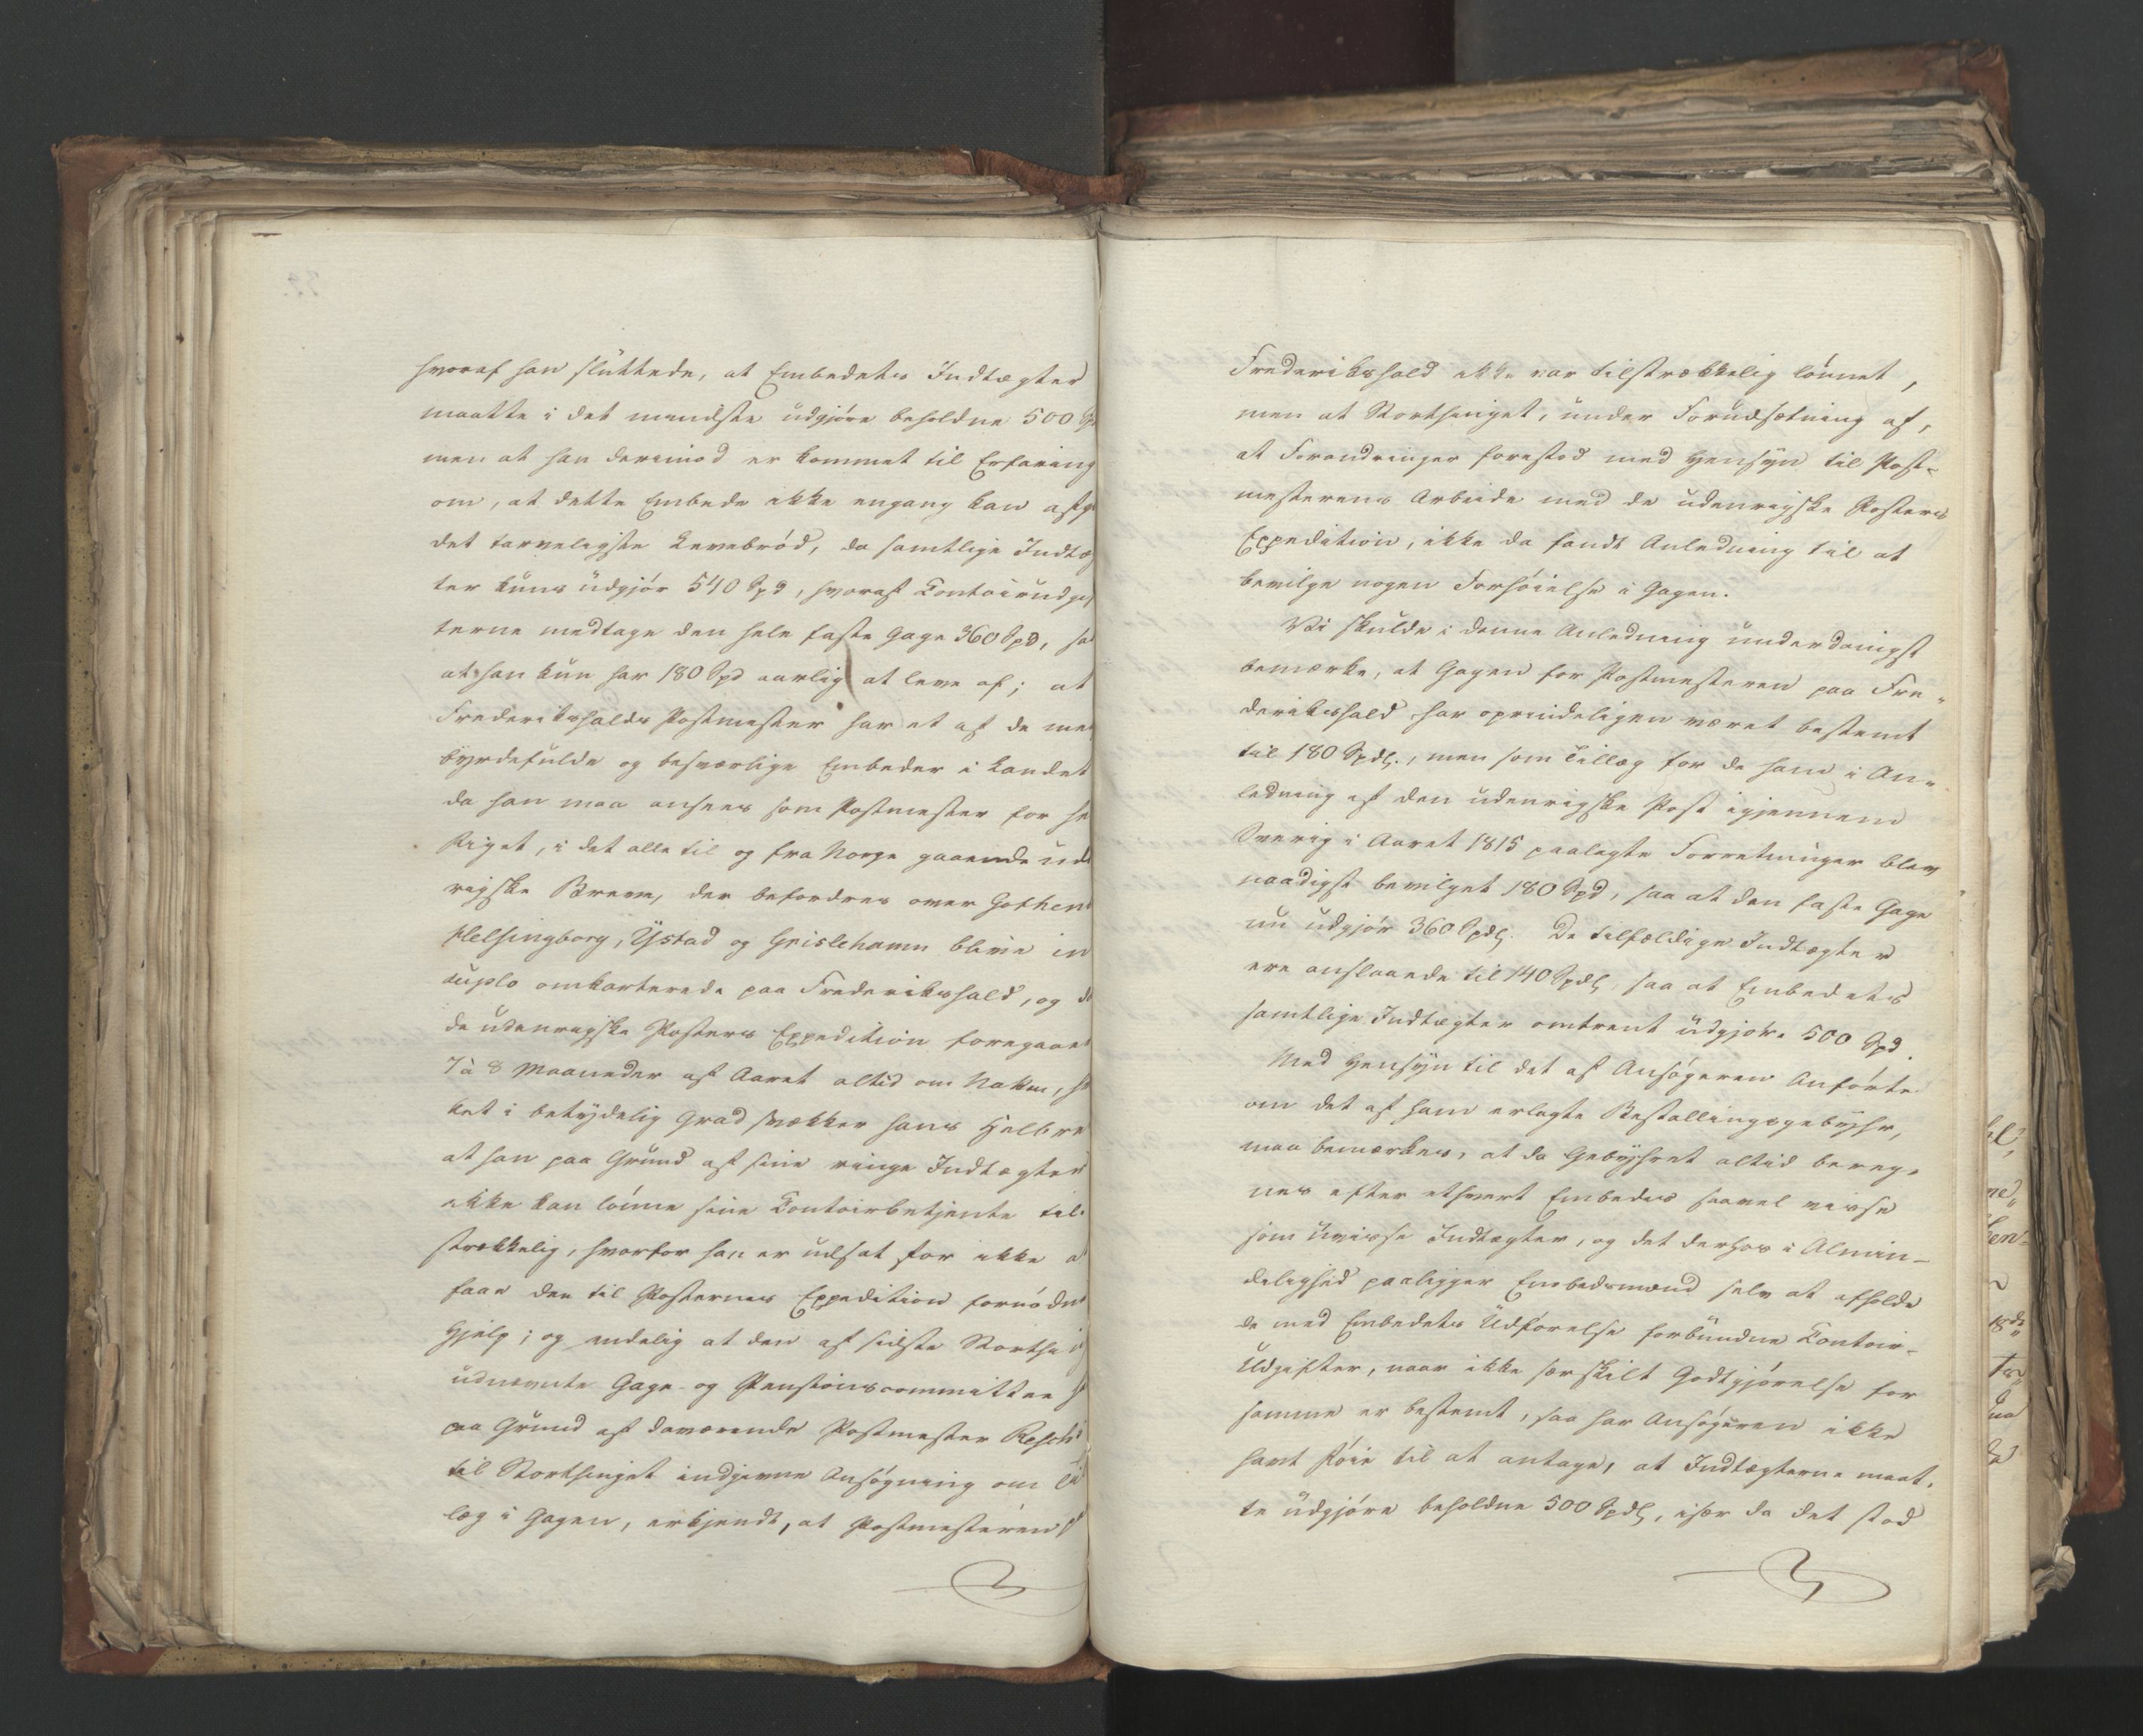 hvoraf han sluttede, at Embedets Indtægter
maatte i det mindste udgjöre beholdne 500
men at han derimod er kommet til Erfaring
om, at dette Embede ikke engang kan afg
det tarveligste Levebröd, da samtlige Indtæg
ter kuns udgjör 540 Spd, hvoraf Contoirudgif
terne medtage den hele faste Gage 360 Spd, sa
at han kun har 180 Spd aarlig at leve af; at
Frederikshalds Postmester har et af de me
byrdefulde og besværlige Embeder i Landet
da han maa ansees som Postmester for he
Riget, i det alle til og fra Norge gaaende ude
rigske Breve, der befordres over Gothen
Helsingborg, Ÿstad og Grislehamn blive in
duplo omkarterede paa Frederikshald, og d
de udenrigske Posters Expedition foregaae
7 à 8 Maaneder af Aaret altid om Natten, h
ket i betydelig Grad svækker hans Helbre
at han paa Grund af sine ringe Indtægter
ikke kan lönne sine Contoirbetjente til-
strækkelig, hvorfor han er udsat for ikke a
faae den til Posternes Expedition fornödne
Hjelp; og endelig at den af sidste Storthi
udnævnte Gage- og Pensionscommittee h
paa Grund af daværende Postmester
til Storthinget indgivne Ansögning om Til
læg i Gagen, erkjendt, at Postmesteren p
Frederikshald ikke var tilstrækkelig lönnet,
men at Storthinget, under Forudsætning af,
at Forandringer forestod med Hensyn til Post-
mesterens Arbeide med de udenrigske Posters
Expedition, ikke da fandt Anledning til at
bevilge nogen Forhöielse i Gagen.
Vi skulde i denne Anledning underdanigst
bemærke, at Gagen for Postmesteren paa Fre-
derikshald har oprindeligen været bestemt
til 180 Spdlr., men som Tillæg for de ham i An-
ledning af den udenrigske Post igjennem
Sverig i Aaret 1815 paalagte Forretninger blev
naadigst bevilget 180 Spd, saa at den faste Gage
nu udgjör 360 Spdlr. De tilfældige Indtægter
ere anslaaede til 140 Spdlr, saa at Embedets
samtlige Indtægter omtrent udgjöre 500 Spd.
Med Hensyn til det af Ansögeren Anförte
om det af ham erlagte Bestallingsgebyhr,
maa bemærkes, at da Gebyhret altid bereg-
nes efter ethvert Embedes saavel visse
som uvisse Indtægter, og det derhos i Almin-
delighed paaligger Embedsmænd selv at afholde
de med Embedets Udförelse forbundne Contoir-
Udgifter, naar ikke særskilt Godtgjörelse for
samme er bestemt, saa har Ansögeren ikke
havt Föie til at antage, at Indtægterne maat-
te udgjöre beholdne 500 Spdlr, især da det stod